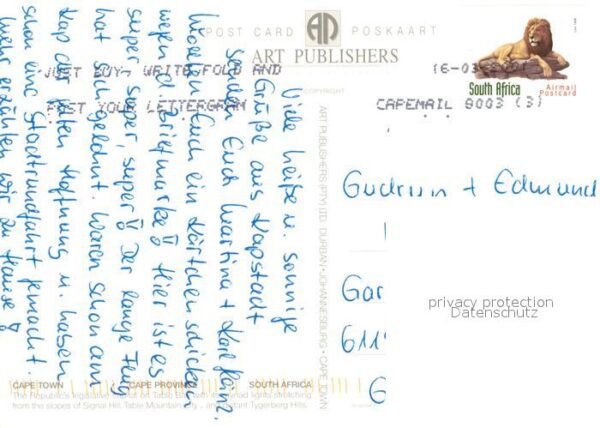 POST CARD POSKAART
ART PUBLISHERS
JUST BUY, WRITE, FOLD AND
POST YOUR LETTERGRAM
16-03-
CAPEMAIL 8003 (3)
South Africa
Airmail
Postcard
COPYRIGHT
ART PUBLISHERS (PTY) LTD. DURBAN • JOHANNESBURG • CAPE TOWN
Viele heiße u. sonnige
Grüße aus Kapstadt
senden Euch Martina + Karl Heinz.
Wollten Euch ein Kärtchen schicken
wegen d. Briefmarke! Hier ist es
super, super, super! Der lange Flug
hat sich gelohnt. Waren schon am
Kap der guten Hoffnung u. haben
schon eine Stadtrundfahrt gemacht.
Mehr erzählen wir zu Hause!
Gudrun + Edmund
Gar
611
G
privacy protection
Datenschutz
CAPE TOWN CAPE PROVINCE SOUTH AFRICA
The Republic's legislative capital on Table Bay with its myriad lights stretching
from the slopes of Signal Hill, Table Mountain to distant Tygerberg Hills.